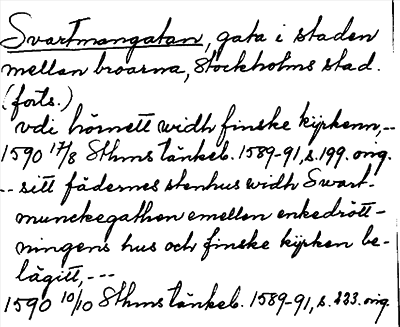 Svartmangatan, gata i staden
mellan broarna, Stockholms stad.
(forts.)
vdi hörnett widh finske kyrkenn,--
1590 17/8 Sthms tänkeb. 1589-91, s. 199. orig.
-- sitt fädernes stenhus widh Swart-
munckegathen emellen enkedrott-
ningens hus och finske kyrken be-
lägitt,---
1590 10/10 Sthms tänkeb. 1589-91, s. 233. orig.